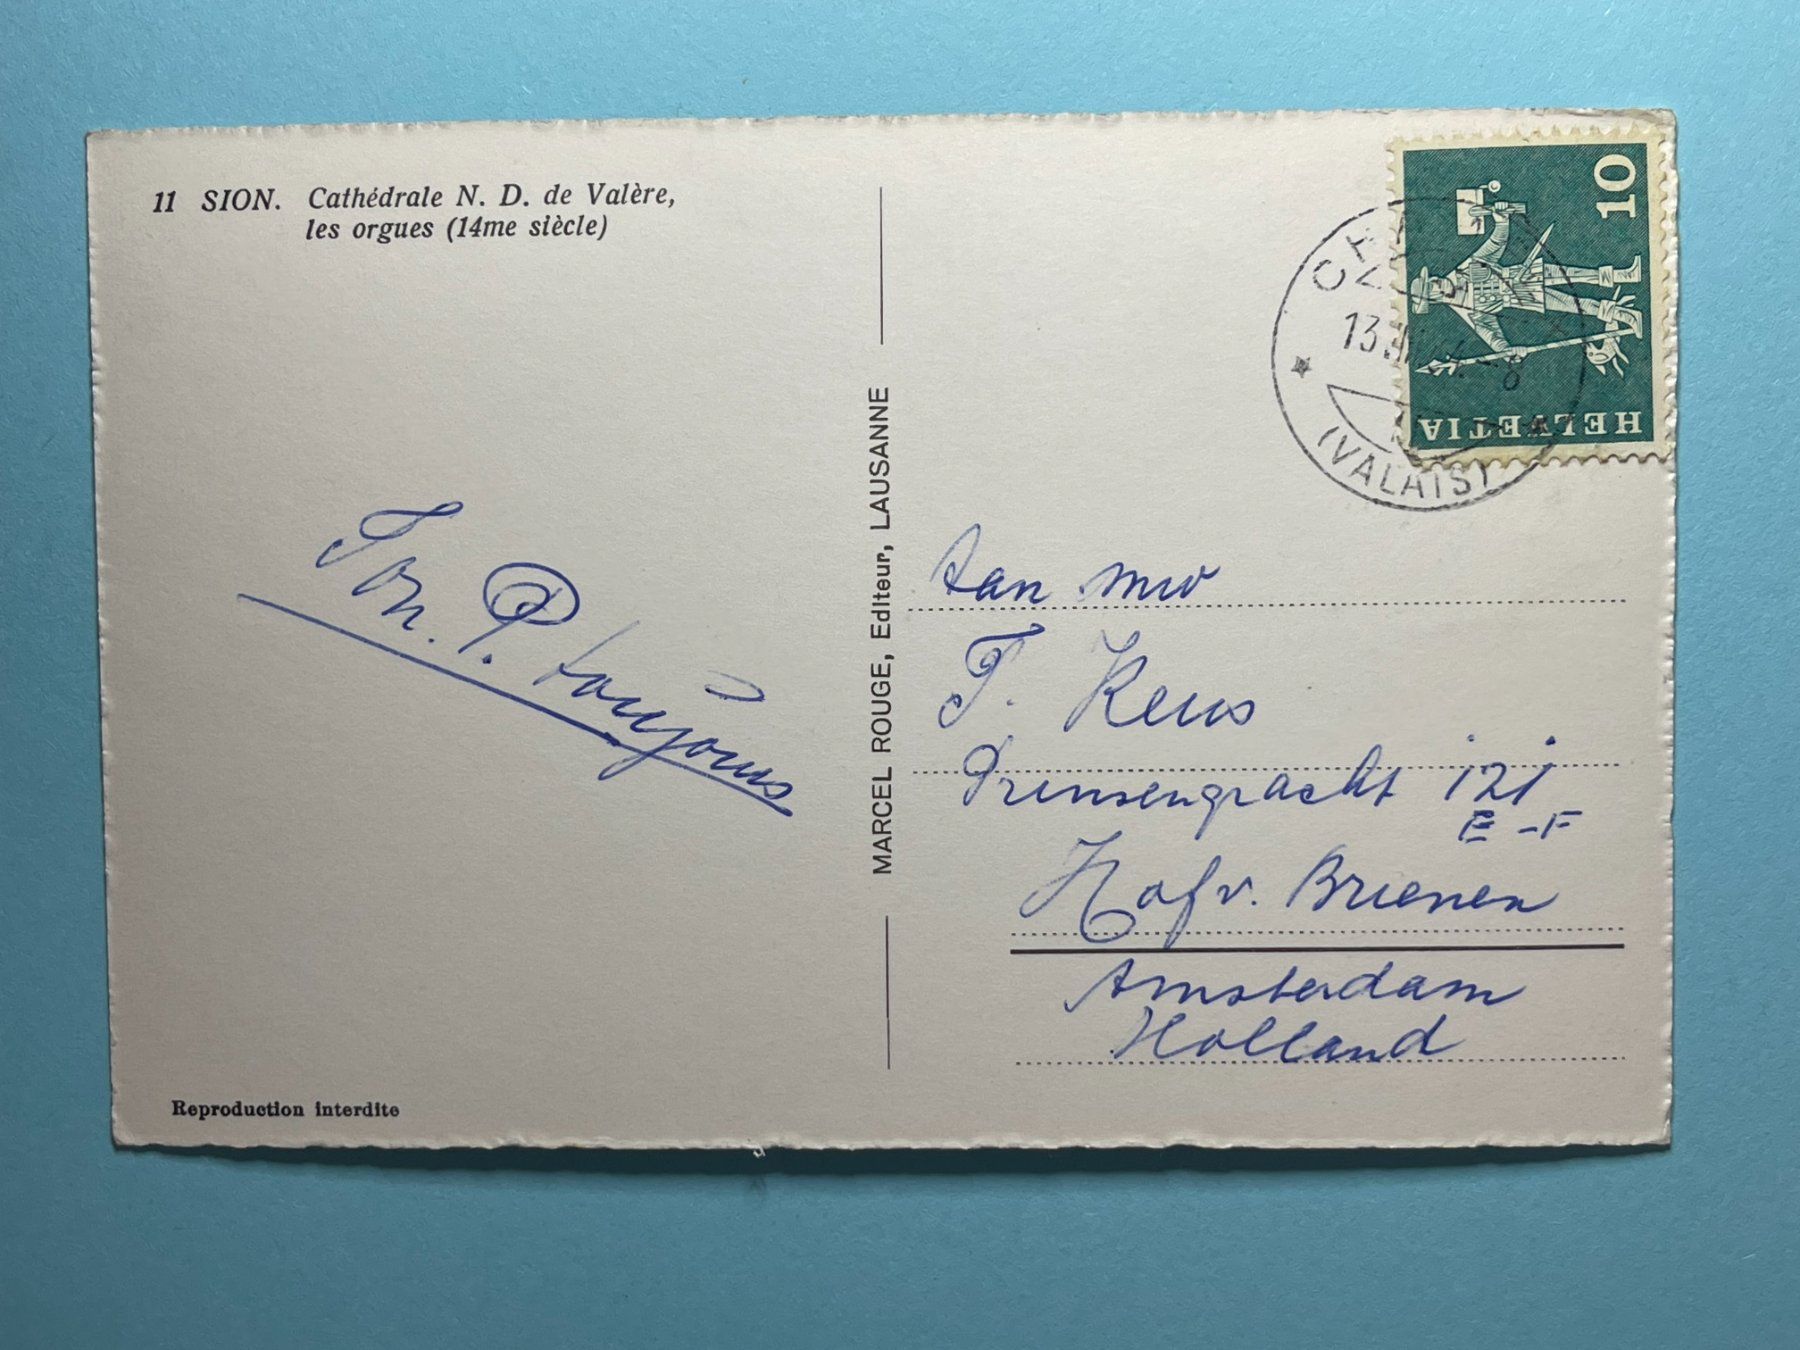 11 SION. Cathédrale N. D. de Valère,
les orgues (14me siècle)
Ton. P. toujours
Reproduction interdite
MARCEL ROUGE, Editeur, LAUSANNE
10
HELVETIA
13
8
(VALAIS)
aan mw
T. Keus
Prinsengracht 121
E-F
Hofv. Brienen
Amsterdam
Holland